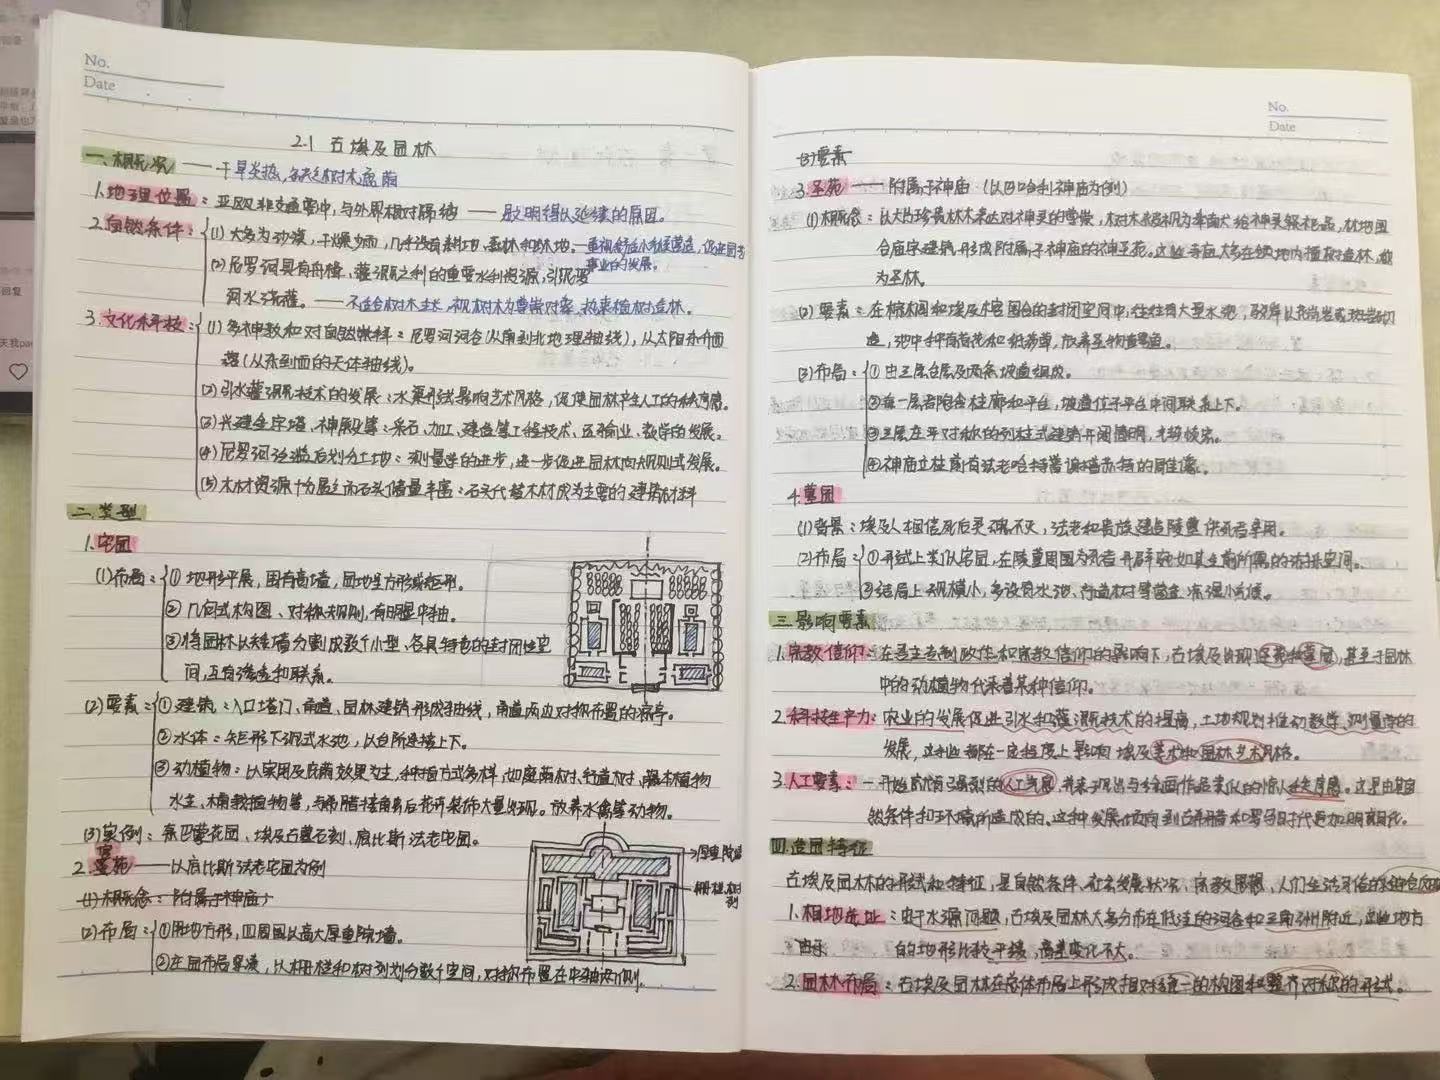 No.
Date
2.1 古埃及园林
一、概况 —— 干旱炎热,缺乏树木庇荫
1.地理位置:亚欧非交通要冲,与外界相对隔绝 —— 文明得以延续的原因。
2.自然条件:(1)大多为沙漠,干燥少雨,几乎没有耕地、森林和牧地。—重视舒适小气候营造,促进园艺事业的发展。
(2)尼罗河具有舟楫、灌溉之利的重要水利资源,引尼罗
河水浇灌。——不适合树木生长,视树木为尊崇对象,热衷植树造林。
3.文化科技:(1)多神教和对自然崇拜:尼罗河河谷(从南到北地理轴线),从太阳东升西
落(从东到西的天体轴线)。
(2)引水灌溉技术的发展:水渠形法影响艺术风格,促使园林产生人工的秩序感。
(3)兴建金字塔、神殿等:采石、加工、建造等工程技术、运输业、数学的发展。
(4)尼罗河泛滥后划分土地:测量学的进步,进一步促进园林向规则式发展。
(5)木材资源十分匮乏而石头储量丰富:石头代替木材成为主要的建筑材料
二.类型
1.宅园
(1)布局:①地形平展,围有高墙,园地呈方形或矩形。
②几何式构图、对称规则,有明显中轴。
③将园林以矮墙分割成数个小型、各具特色的封闭性空
间,互有渗透和联系。
(2)要素:①建筑:入口塔门、甬道、园林建筑形成轴线,甬道两边对称布置的凉亭。
②水体:矩形下沉式水池,以台阶连接上下。
③动植物:以实用及庇荫效果为主,种植方式多样,如庭荫树、行道树、藤本植物
水生、桶栽植物等,与希腊接触后花卉装饰大量出现。放养水禽等动物。
(3)实例:奈巴蒙花园、埃及古墓石刻、底比斯法老宅园。
2.宫苑——以底比斯法老宅园为例
(1)概念:附属于神庙
(2)布局:①用地方形,四周围以高大厚重院墙。
②庄园布局紧凑,以栅栏和树列划分数个空间,对称布置在中轴两侧。
厚重院墙
栅栏、树列
No.
Date
(3)要素
3.圣苑——附属于神庙(以巴哈利神庙为例)
(1)概念:以大片珍贵林木表达对神灵的尊崇,树木被视为奉献给神灵祭祀品,林地围
合庙宇建筑,形成附属于神庙的神圣苑。这些寺庙大多在领地内植树造林,称
为圣林。
(2)要素:在棕榈和埃及榕围合的封闭空间中,往往有大量水池,驳岸以花岗岩或斑岩砌
造,池中种有荷花和纸莎草,放养圣物鳄鱼。
(3)布局:①由三层台层及两条坡道组成。
②每一层都结合柱廊和平台,坡道位于平台中间联系上下。
③三层在平对称的列柱式建筑开阔简明
④神庙立柱前有法老哈特普谢普苏特的肖像。
4.墓园
(1)背景:埃及人相信死后灵魂不灭,法老和贵族建造陵墓供死者享用。
(2)布局:①形式上类似宅园,在陵墓周围为死者开辟宛如其生前所需的游乐空间。
②结局上大规模小,多设有水池、行道树等营造凉湿小气候。
三.影响要素
1.宗教信仰:在君主专制政体和宗教信仰的影响下,古埃及出现圣苑和墓园,甚至于园林
中的动植物代表着某种信仰。
2.科技生产力:农业的发展促进引水和灌溉技术的提高,土地规划推动数学、测量学的
发展,这些都在一定程度上影响埃及美术和园林艺术风格。
3.人工要素:一开始就有强烈的人工气息,并表现出与绘画作品类似的惊人秩序感。这是由其自
然条件和环境所造成的。这种发展倾向到古希腊和罗马时代更加明确化。
四.造园特征
古埃及园林的形式和特征,是自然条件、社会发展状况、宗教思想、人们生活习俗的综合反映
1.相地选址:由于水源问题,古埃及园林大多分布在低洼的河谷和三角洲附近,这些地方
的地形比较平缓,高差变化不大。
2.园林布局:古埃及园林在总体布局上形成相对统一的构图和整齐对称的形式。